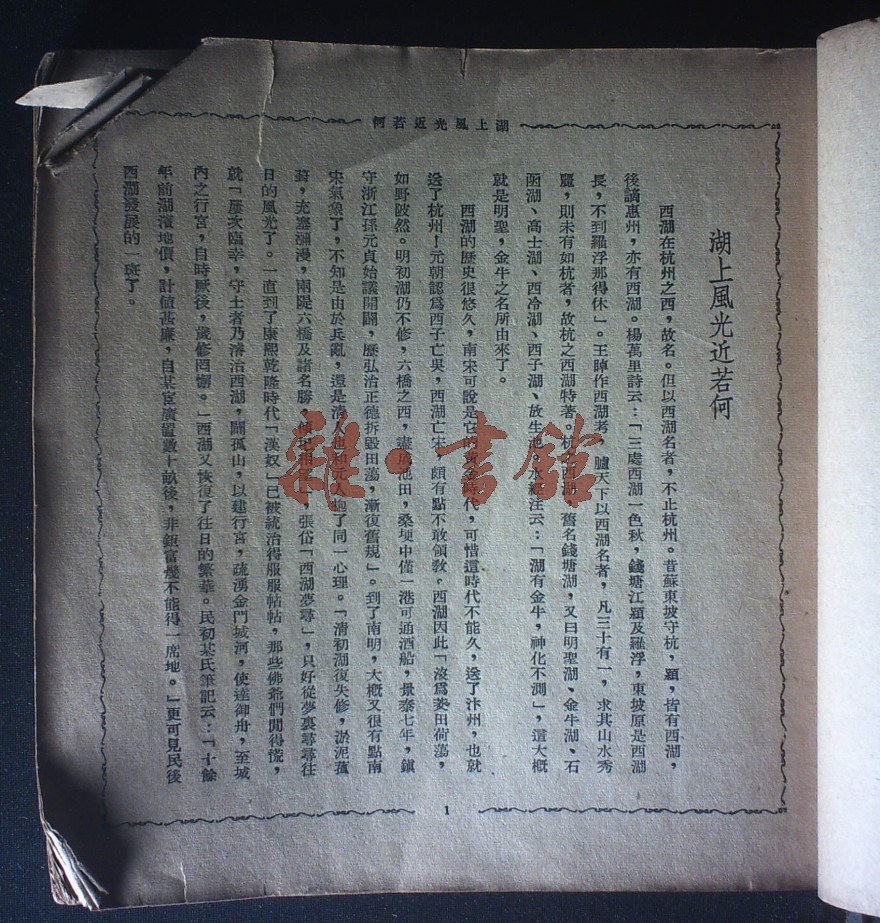 湖上風光近若何
湖上風光近若何
西湖在杭州之西，故名。但以西湖名者，不止杭州。昔蘇東坡守杭，潁，皆有西湖，
後謫惠州，亦有西湖。楊萬里詩云：「三處西湖一色秋，錢塘江潁及羅浮，東坡原是西湖
長，不到羅浮那得休」。王晫作西湖考，臚天下以西湖名者，凡三十有一，求其山水秀
麗，則未有如杭者，故杭之西湖特著。杭之西湖，舊名錢塘湖，又曰明聖湖、金牛湖、石
函湖、高士湖、西冷湖、西子湖、放生池。水經注云：「湖有金牛，神化不測」，這大概
就是明聖，金牛之名所由來了。
西湖的歷史很悠久，南宋可說是它的黃金時代，可惜這時代不能久，送了汴州，也就
送了杭州！元朝認爲西子亡吳，西湖亡宋，頗有點不敢領敎。西湖因此「沒爲菱田荷蕩，
如野陂然。明初湖仍不修，六橋之西，盡成池田，桑埂中僅一港可通酒船，景泰七年，鎭
守浙江孫元貞始議開闢，歷弘治正德拆毀田蕩，漸復舊規」。到了南明，大概又很有點南
宋氣象了，不知是由於兵亂，還是清人也和元人抱了同一心理。「清初湖復失修，淤泥菰
葑，充塞瀰漫，兩隄六橋及諸名勝，傾圮相望」，張岱「西湖夢尋」，只好從夢裏尋尋往
日的風光了。一直到了康熙乾隆時代「漢奴」已被統治得服服帖帖，那些佛爺們閒得慌，
就「屢次臨幸，守土者乃濬治西湖，闢孤山，以建行宮，疏湧金門城河，使達御舟，至城
內之行宮，自時厥後，歲修罔懈。」西湖又恢復了往日的繁華。民初某氏筆記云：「十餘
年前湖濱地價，計値甚廉，自某宦廣置數十畝後，非鉅富幾不能得一席地。」更可見民後
西湖發展的一斑了。
1
雜·書館